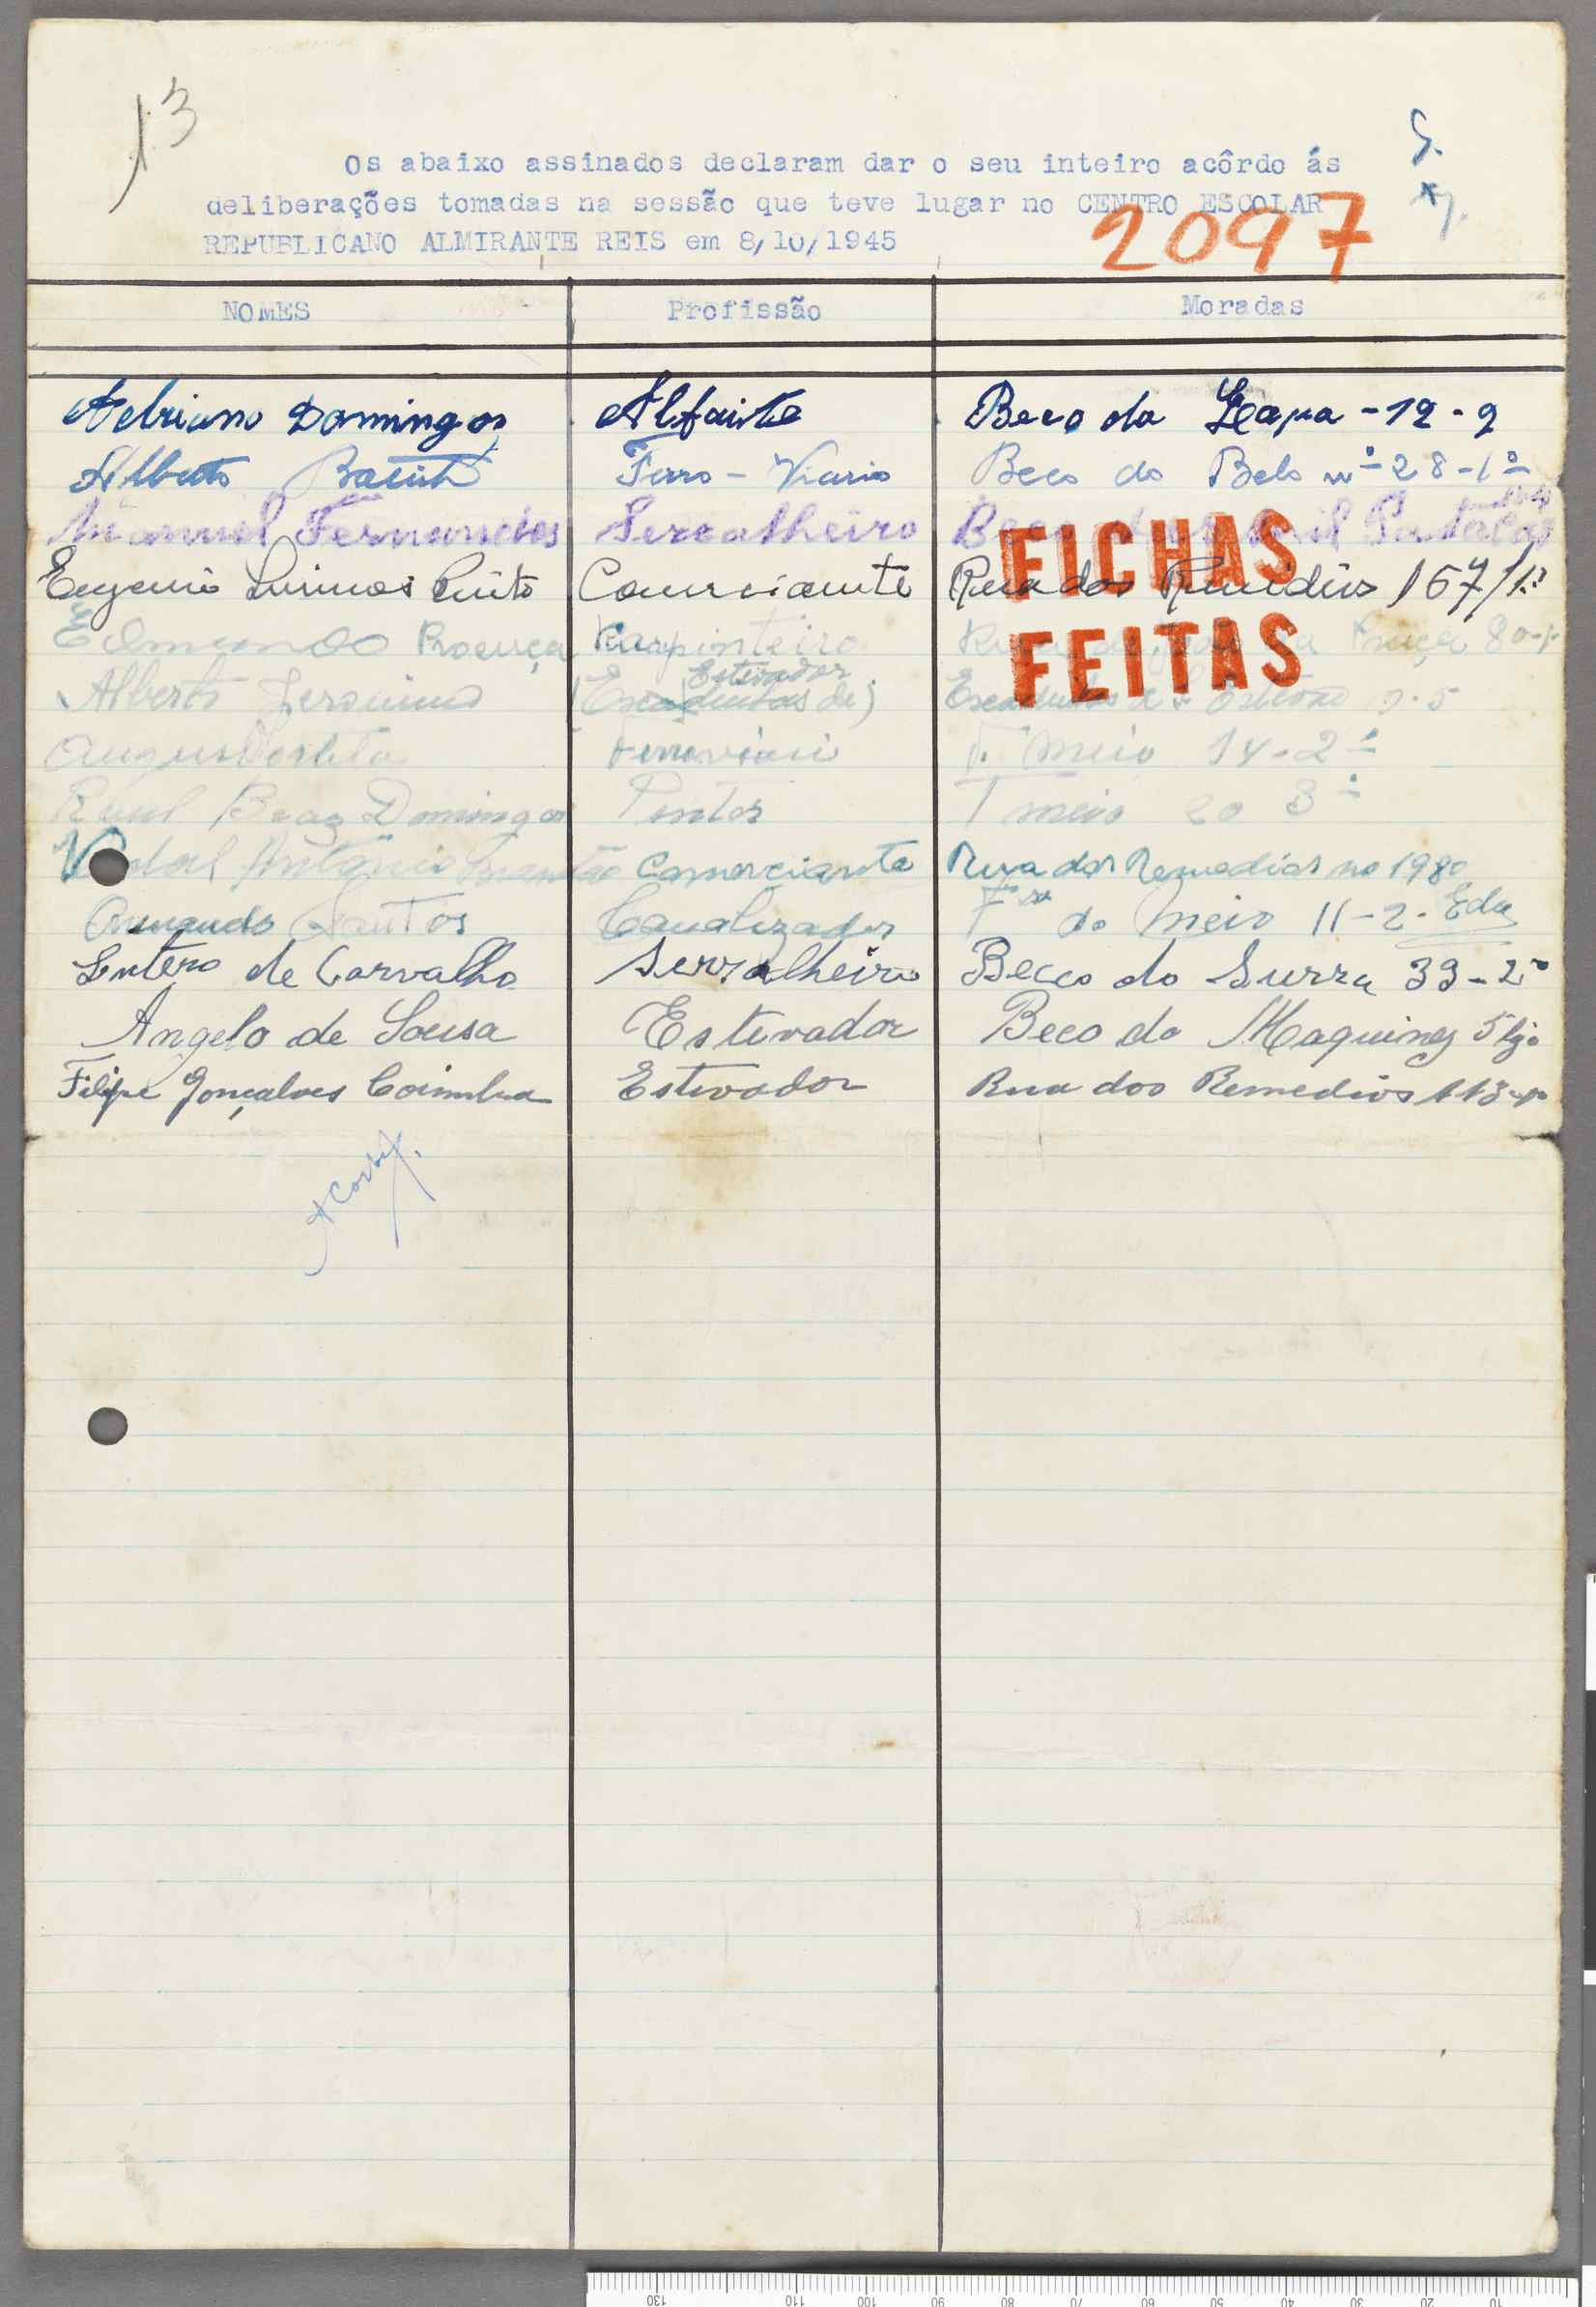 13
Os abaixo assinados declaram dar o seu inteiro acôrdo ás
deliberações tomadas na sessão que teve lugar no CENTRO ESCOLAR
REPUBLICANO ALMIRANTE REIS em 8/10/1945
2097
NOMES Profissão Moradas
Adriano Domingos Alfaiate Beco da Lapa - 12 - 2
Alberto Batista Ferro - Viario Beco do Belo nº 28-1º
Manuel Fernandes Serralheiro
Eugenio Pinto Comerciante Rua dos Remedios 167/1º
FICHAS
FEITAS
Edmundo Proença Karpinteiro 80
Estivador
Alberto Jeronimo (Escadinhas de) Escadinhas de S. Estevão 5
Augusto Ferroviari T. meio 14-2º
Raul Braz Domingos Pintor T meio 20 3º
António Comerciante Rua dos Remedios no 198
Armando Santos Canalizador Tª do Meio 11-2. Edu
Antero de Carvalho Serralheiro Becco do Surra 39-2º
Angelo de Sousa Estivador Beco do Maquinez 5 lja
Filipe Gonçalves Coimbra Estivador Rua dos Remedios 113